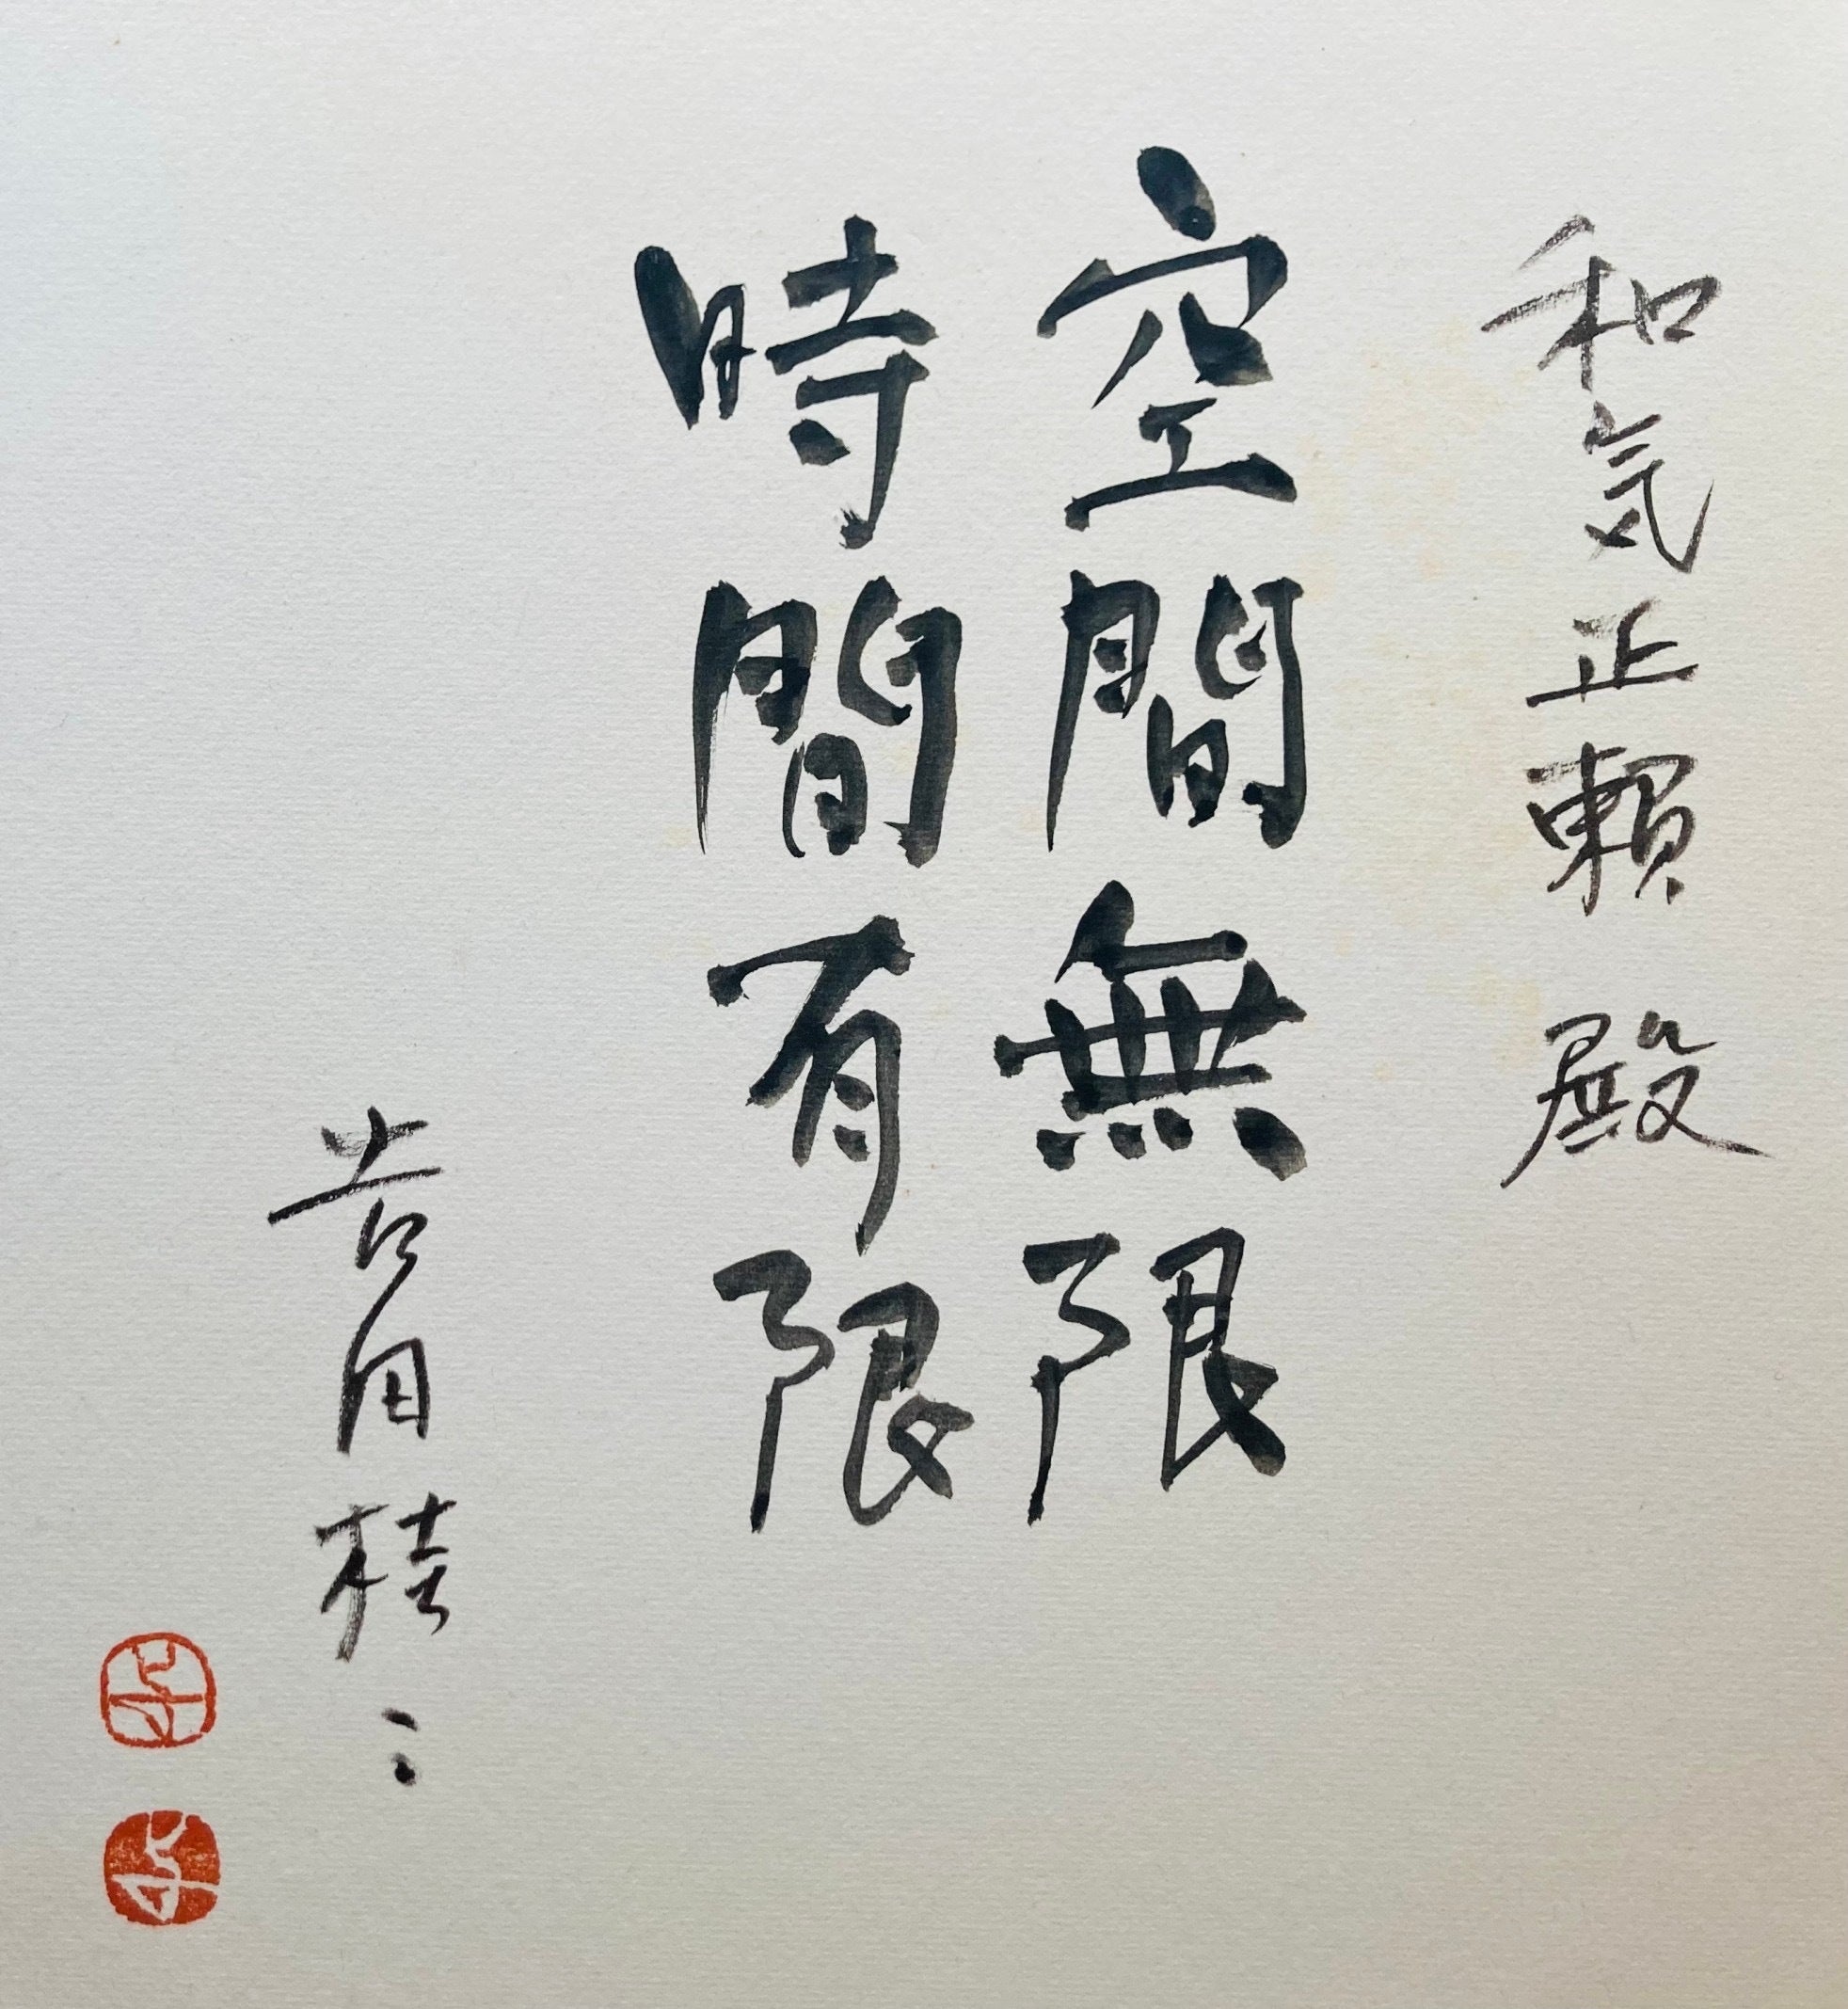 和気正頼 殿
空間無限
時間有限
吉田桂二